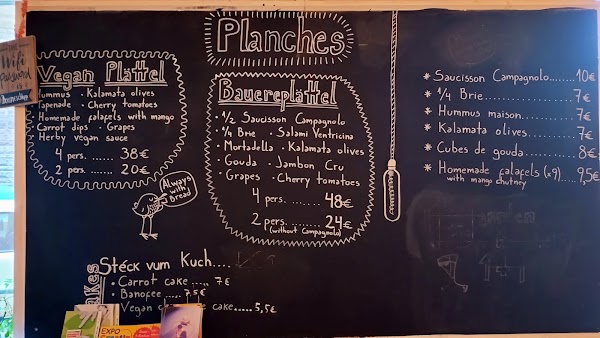 Planches
Wifi
password
Vegan Plättel
Hummus · Kalamata olives
Tapenade · Cherry tomatoes
Homemade falafels with mango
Carrot dips · Grapes
Herby vegan sauce
4 pers. ....... 38€
2 pers. ....... 20€
Always
with
Bread
Bauereplättel
· 1/2 Saucisson Campagnolo
· 1/4 Brie · Salami Ventricina
· Mortadella · Kalamata olives
· Gouda · Jambon Cru
· Grapes · Cherry tomatoes
4 pers. ....... 48€
2 pers. ........ 24€
(without Campagnolo)
* Saucisson Campagnolo....... 10€
* 1/4 Brie ............ 7€
* Hummus maison......... 7€
* Kalamata olives ........ 7€
* Cubes de gouda ........ 8€
* Homemade falafels (x9) ..... 9,5€
with mango chutney
Stéck vum Kuch....
· Carrot cake ..... 7€
· Banofee ..... 7.5€
· Vegan cake..... 5,5€
EXPO